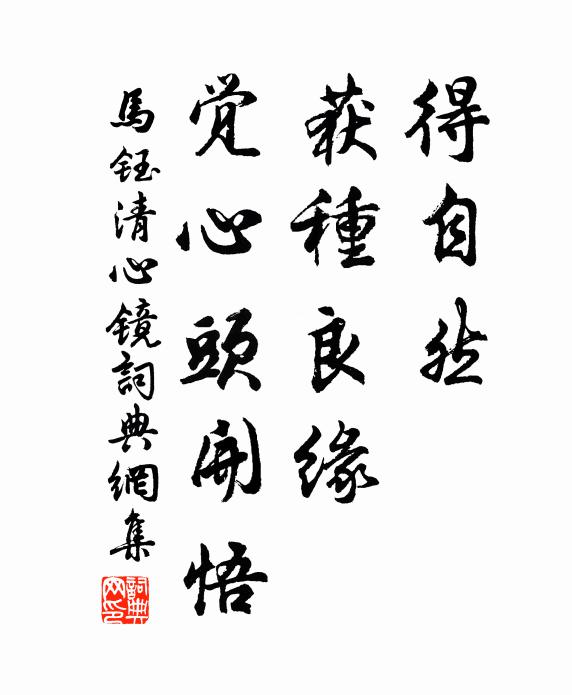 得自然
获種良缘
觉心頭開悟
馬鈺清心镜詞典網集
詞典网印